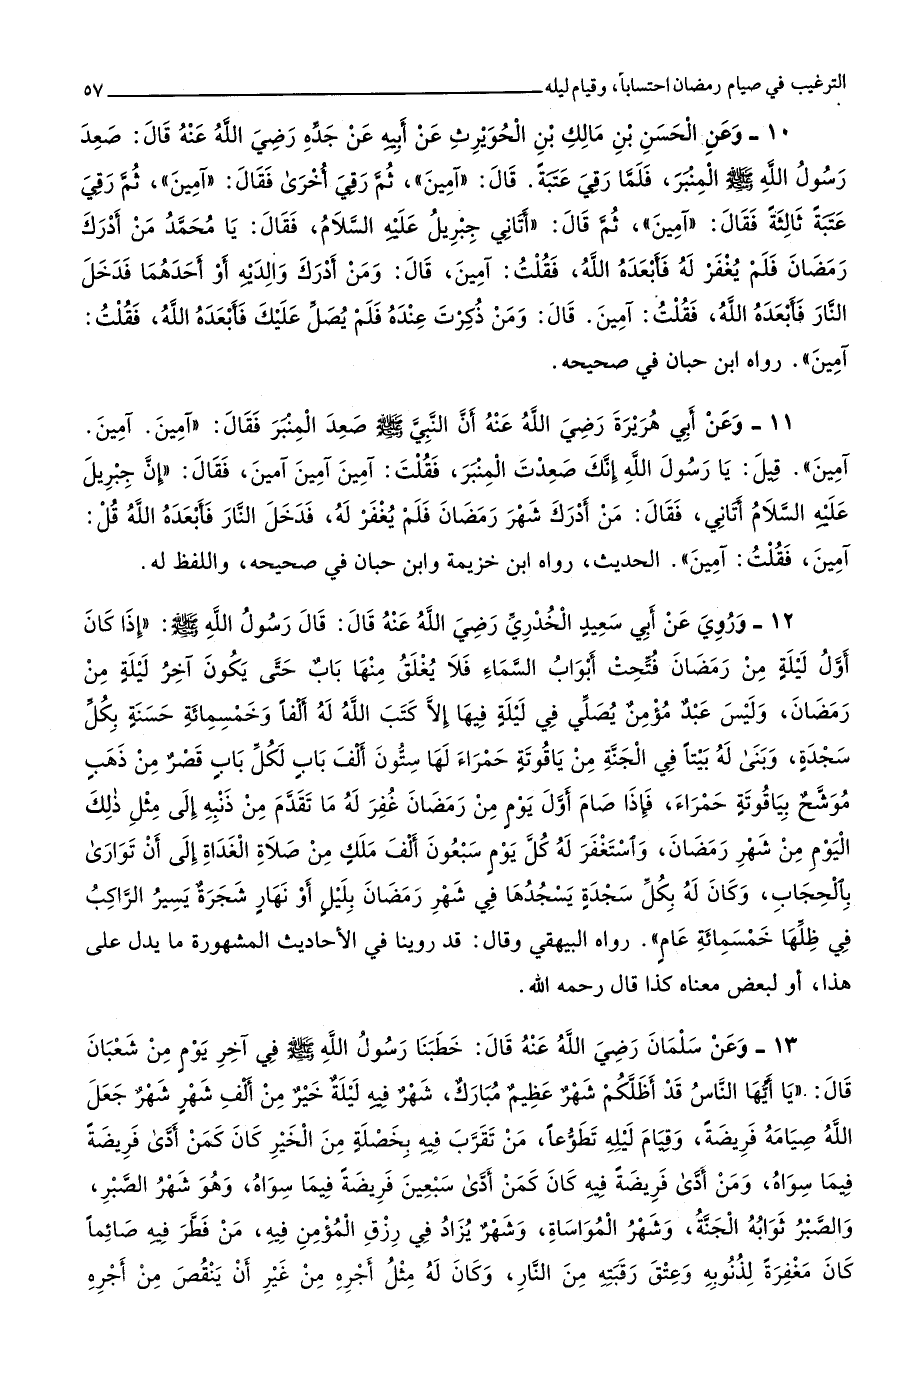 الترغيب في صيام رمضان احتساباً، وقيام ليله ٥٧
١٠ - وَعَنِ الْحَسَنِ بْنِ مَالِكِ بْنِ الْحُوَيْرِثِ عَنْ أَبِيهِ عَنْ جَدِّهِ رَضِيَ اللَّهُ عَنْهُ قَالَ: صَعِدَ
رَسُولُ اللَّهِ ﷺ الْمِنْبَرَ، فَلَمَّا رَقِيَ عَتَبَةً. قَالَ: «آمِينَ»، ثُمَّ رَقِيَ أُخْرَىٰ فَقَالَ: «آمِينَ»، ثُمَّ رَقِيَ
عَتَبَةً ثَالِثَةً فَقَالَ: «آمِينَ»، ثُمَّ قَالَ: «أَتَانِي جِبْرِيلُ عَلَيْهِ السَّلَامُ، فَقَالَ: يَا مُحَمَّدُ مَنْ أَدْرَكَ
رَمَضَانَ فَلَمْ يُغْفَرْ لَهُ فَأَبْعَدَهُ اللَّهُ، فَقُلْتُ: آمِينَ، قَالَ: وَمَنْ أَدْرَكَ وَالِدَيْهِ أَوْ أَحَدَهُمَا فَدَخَلَ
النَّارَ فَأَبْعَدَهُ اللَّهُ، فَقُلْتُ: آمِينَ. قَالَ: وَمَنْ ذُكِرْتَ عِنْدَهُ فَلَمْ يُصَلِّ عَلَيْكَ فَأَبْعَدَهُ اللَّهُ، فَقُلْتُ:
آمِينَ». رواه ابن حبان في صحيحه.
١١ - وَعَنْ أَبِي هُرَيْرَةَ رَضِيَ اللَّهُ عَنْهُ أَنَّ النَّبِيَّ ﷺ صَعِدَ الْمِنْبَرَ فَقَالَ: «آمِينَ. آمِينَ.
آمِينَ». قِيلَ: يَا رَسُولَ اللَّهِ إِنَّكَ صَعِدْتَ الْمِنْبَرَ، فَقُلْتَ: آمِينَ آمِينَ آمينَ، فَقَالَ: «إِنَّ جِبْرِيلَ
عَلَيْهِ السَّلَامُ أَتَانِي، فَقَالَ: مَنْ أَدْرَكَ شَهْرَ رَمَضَانَ فَلَمْ يُغْفَرْ لَهُ، فَدَخَلَ النَّارَ فَأَبْعَدَهُ اللَّهُ قُلْ:
آمِينَ، فَقُلْتُ: آمِينَ». الحديث، رواه ابن خزيمة وابن حبان في صحيحه، واللفظ له.
١٢ - وَرُوِيَ عَنْ أَبِي سَعِيدٍ الْخُدْرِيِّ رَضِيَ اللَّهُ عَنْهُ قَالَ: قَالَ رَسُولُ اللَّهِ ﷺ: «إِذَا كَانَ
أَوَّلُ لَيْلَةٍ مِنْ رَمَضَانَ فُتِّحِتْ أَبْوَابُ السَّمَاءِ فَلَا يُغْلَقُ مِنْهَا بَابٌ حَتَّى يَكُونَ آخِرُ لَيْلَةٍ مِنْ
رَمَضَانَ، وَلَيْسَ عَبْدٌ مُؤْمِنٌ يُصَلِّي فِي لَيْلَةٍ فِيهَا إِلاَّ كَتَبَ اللَّهُ لَهُ أَلْفاً وَخَمْسِمِائَةِ حَسَنَةٍ بِكُلِّ
سَجْدَةٍ، وَبَنَىٰ لَهُ بَيْتاً فِي الْجَنَّةِ مِنْ يَاقُوتَةٍ حَمْرَاءَ لَهَا سِتُّونَ أَلْفَ بَابٍ لَكُلِّ بَابٍ قَصْرٌ مِنْ ذَهَبٍ
مُوَشَّحٌ بِيَاقُوتَةٍ حَمْرَاءَ، فَإِذَا صَامَ أَوَّلَ يَوْمٍ مِنْ رَمَضَانَ غُفِرَ لَهُ مَا تَقَدَّمَ مِنْ ذَنْبِهِ إِلَى مِثْلِ ذٰلِكَ
الْيَوْمِ مِنْ شَهْرِ رَمَضَانَ، وَاسْتَغْفَرَ لَهُ كُلَّ يَوْمٍ سَبْعُونَ أَلْفَ مَلَكٍ مِنْ صَلَاةِ الْغَدَاةِ إِلَى أَنْ تَوَارَىٰ
بِالْحِجَابِ، وَكَانَ لَهُ بِكُلِّ سَجْدَةٍ يَسْجُدُهَا فِي شَهْرِ رَمَضَانَ بِلَيْلٍ أَوْ نَهَارٍ شَجَرَةٌ يَسِيرُ الرَّاكِبُ
فِي ظِلِّهَا خَمْسَمِائَةِ عَامٍ». رواه البيهقي وقال: قد روينا في الأحاديث المشهورة ما يدل على
هذا، أو لبعض معناه كذا قال رحمه الله.
١٣ - وَعَنْ سَلْمَانَ رَضِيَ اللَّهُ عَنْهُ قَالَ: خَطَبَنَا رَسُولُ اللَّهِ ﷺ فِي آخِرِ يَوْمٍ مِنْ شَعْبَانَ
قَالَ: «يَا أَيُّهَا النَّاسُ قَدْ أَظَلَّكُمْ شَهْرٌ عَظِيمٌ مُبَارَكٌ، شَهْرٌ فِيهِ لَيْلَةٌ خَيْرٌ مِنْ أَلْفِ شَهْرٍ شَهْرٌ جَعَلَ
اللَّهُ صِيَامَهُ فَرِيضَةً، وَقِيَامَ لَيْلِهِ تَطَوُّعاً، مَنْ تَقَرَّبَ فِيهِ بِخَصْلَةٍ مِنَ الْخَيْرِ كَانَ كَمَنْ أَدَّىٰ فَرِيضَةً
فِيمَا سِوَاهُ، وَمَنْ أَدَّىٰ فَرِيضَةً فِيهِ كَانَ كَمَنْ أَدَّىٰ سَبْعِينَ فَرِيضَةً فِيمَا سِوَاهُ، وَهُوَ شَهْرُ الصَّبْرِ،
وَالصَّبْرُ ثَوَابُهُ الْجَنَّةُ، وَشَهْرُ الْمُوَاسَاةِ، وَشَهْرٌ يُزَادُ فِي رِزْقِ الْمُؤْمِنِ فِيهِ، مَنْ فَطَّرَ فِيهِ صَائِماً
كَانَ مَغْفِرَةً لِذُنُوبِهِ وَعِتْقَ رَقَبَتِهِ مِنَ النَّارِ، وَكَانَ لَهُ مِثْلُ أَجْرِهِ مِنْ غَيْرِ أَنْ يَنْقُصَ مِنْ أَجْرِهِ